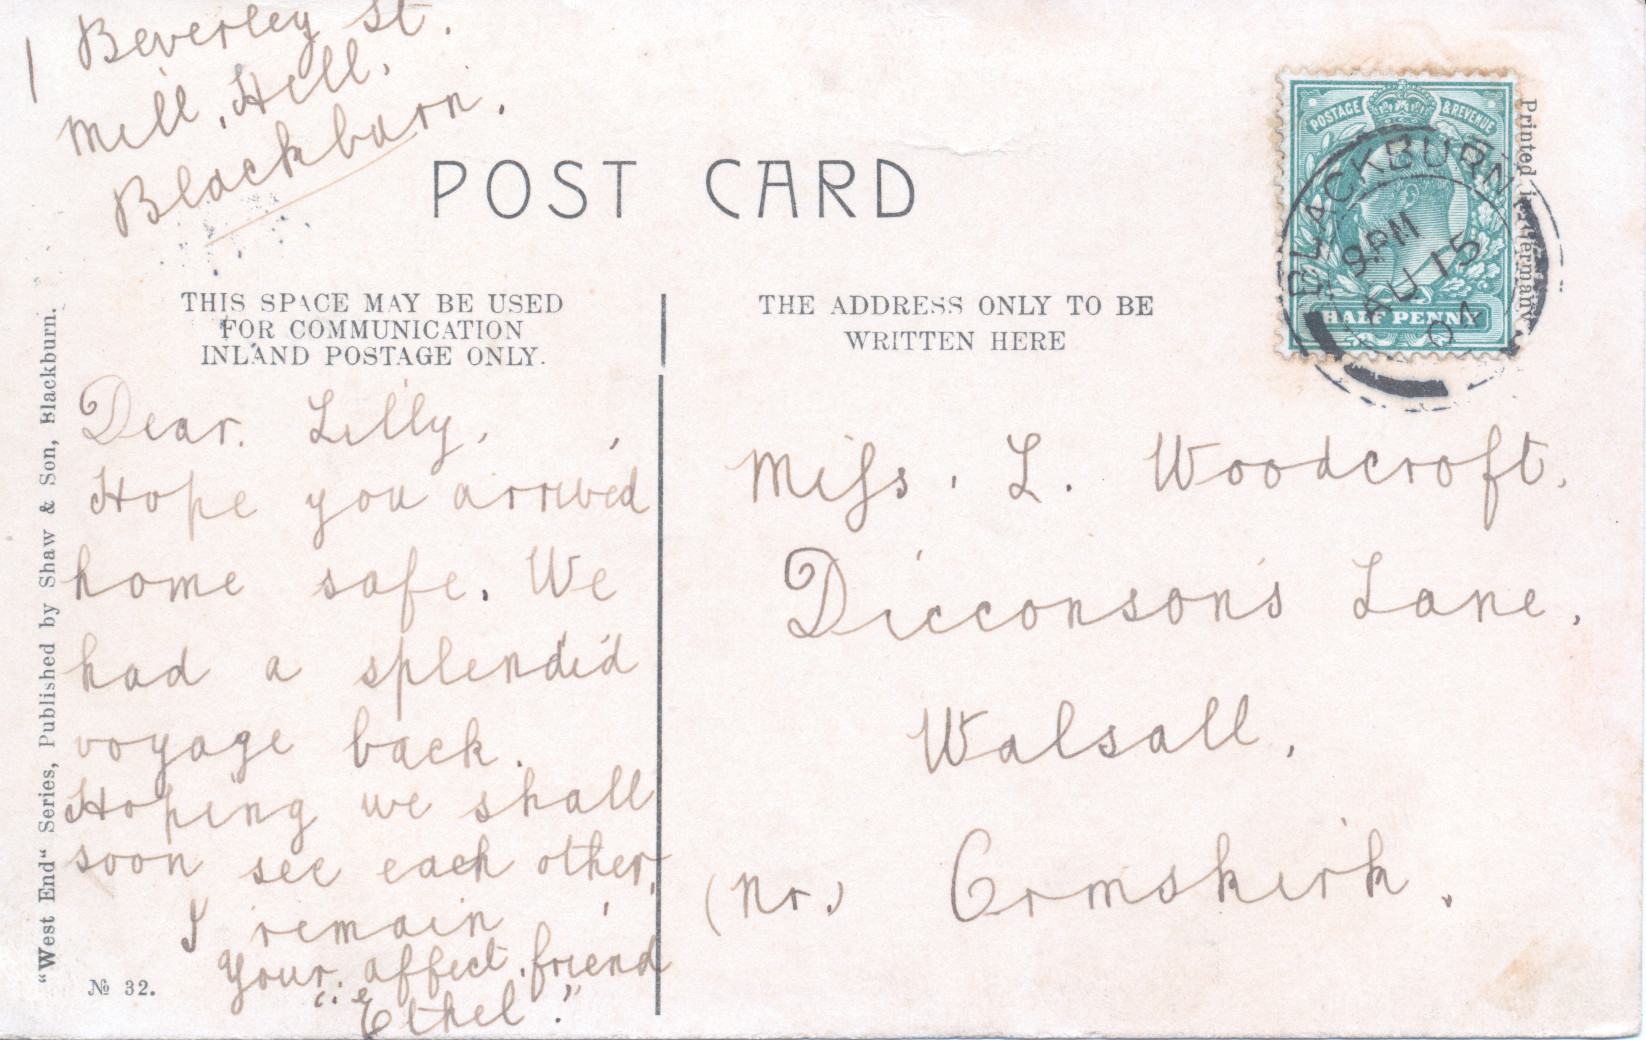 1 Beverley St.
Mill, Hill,
Blackburn.
POST CARD
THIS SPACE MAY BE USED
FOR COMMUNICATION
INLAND POSTAGE ONLY.
THE ADDRESS ONLY TO BE
WRITTEN HERE
POSTAGE & REVENUE
HALF PENNY
BLACKBURN
9 PM
AU 15
04
Printed in Germany
Dear. Lilly,
Hope you arrived
home safe. We
had a splendid
voyage back.
Hoping we shall
soon see each other.
I remain
your. affect. friend
"Ethel."
Miss. L. Woodcroft.
Dicconson's Lane,
Walsall,
(Nr.) Ormskirk.
"West End" Series, Published by Shaw & Son, Blackburn.
№ 32.